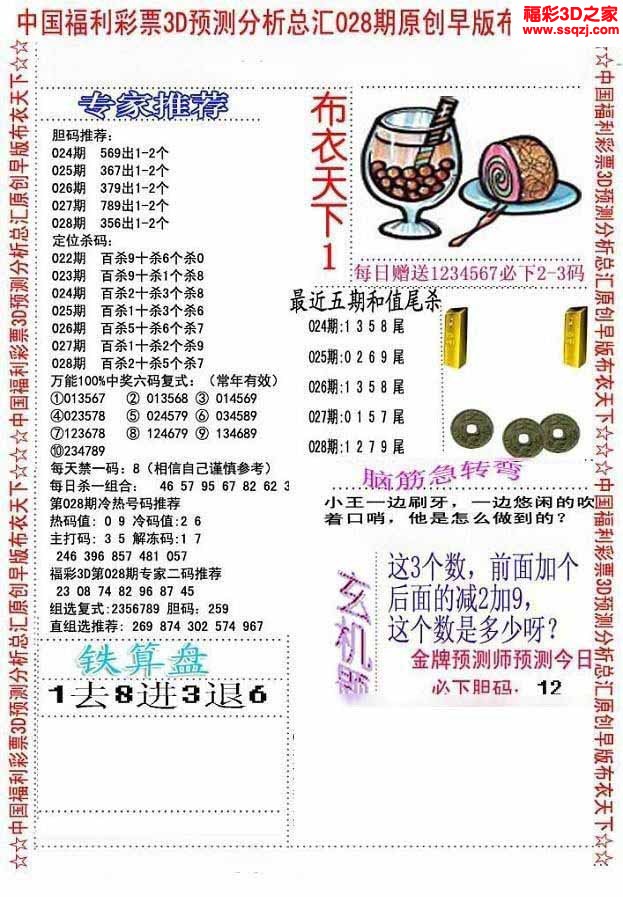 中国福利彩票3D预测分析总汇028期原创早版布
福彩3D之家
www.ssqzj.com
☆☆中国福利彩票3D预测分析总汇原创早版布衣天下☆☆☆中国福利彩票3D预测分析总汇原创早版布衣天下☆☆
专家推荐
胆码推荐:
024期 569出1-2个
025期 367出1-2个
026期 379出1-2个
027期 789出1-2个
028期 356出1-2个
定位杀码:
022期 百杀9十杀6个杀0
023期 百杀9十杀1个杀8
024期 百杀2十杀3个杀8
025期 百杀1十杀3个杀6
026期 百杀5十杀6个杀7
027期 百杀1十杀2个杀9
028期 百杀2十杀5个杀7
万能100%中奖六码复式:（常年有效）
①013567 ②013568 ③014569
④023578 ⑤024579 ⑥034589
⑦123678 ⑧124679 ⑨134689
⑩234789
每天禁一码: 8（相信自己谨慎参考）
每日杀一组合: 46 57 95 67 82 62 3
第028期冷热号码推荐
热码值: 0 9 冷码值:2 6
主打码: 3 5 解冻码:1 7
246 396 857 481 057
福彩3D第028期专家二码推荐
23 08 74 82 96 87 45
组选复式:2356789 胆码: 259
直组选推荐: 269 874 302 574 967
铁算盘
1去8进3退6
布衣天下1
每日赠送1234567必下2-3码
最近五期和值尾杀
024期:1 3 5 8 尾
025期:0 2 6 9 尾
026期:1 3 5 8 尾
027期:0 1 5 7 尾
028期:1 2 7 9 尾
脑筋急转弯
小王一边刷牙，一边悠闲的吹
着口哨，他是怎么做到的？
玄机
这3个数，前面加个
后面的减2加9，
这个数是多少呀？
金牌预测师预测今日
必下胆码: 12
☆中国福利彩票3D预测分析总汇原创早版布衣天下☆☆☆中国福利彩票3D预测分析总汇原创早版布衣天下☆☆